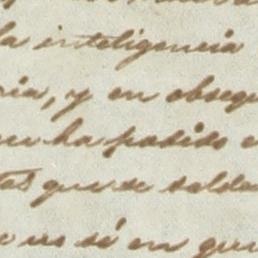 la inteligencia
ria, y en obseq
ha podido
tas que se solda
no sé en que